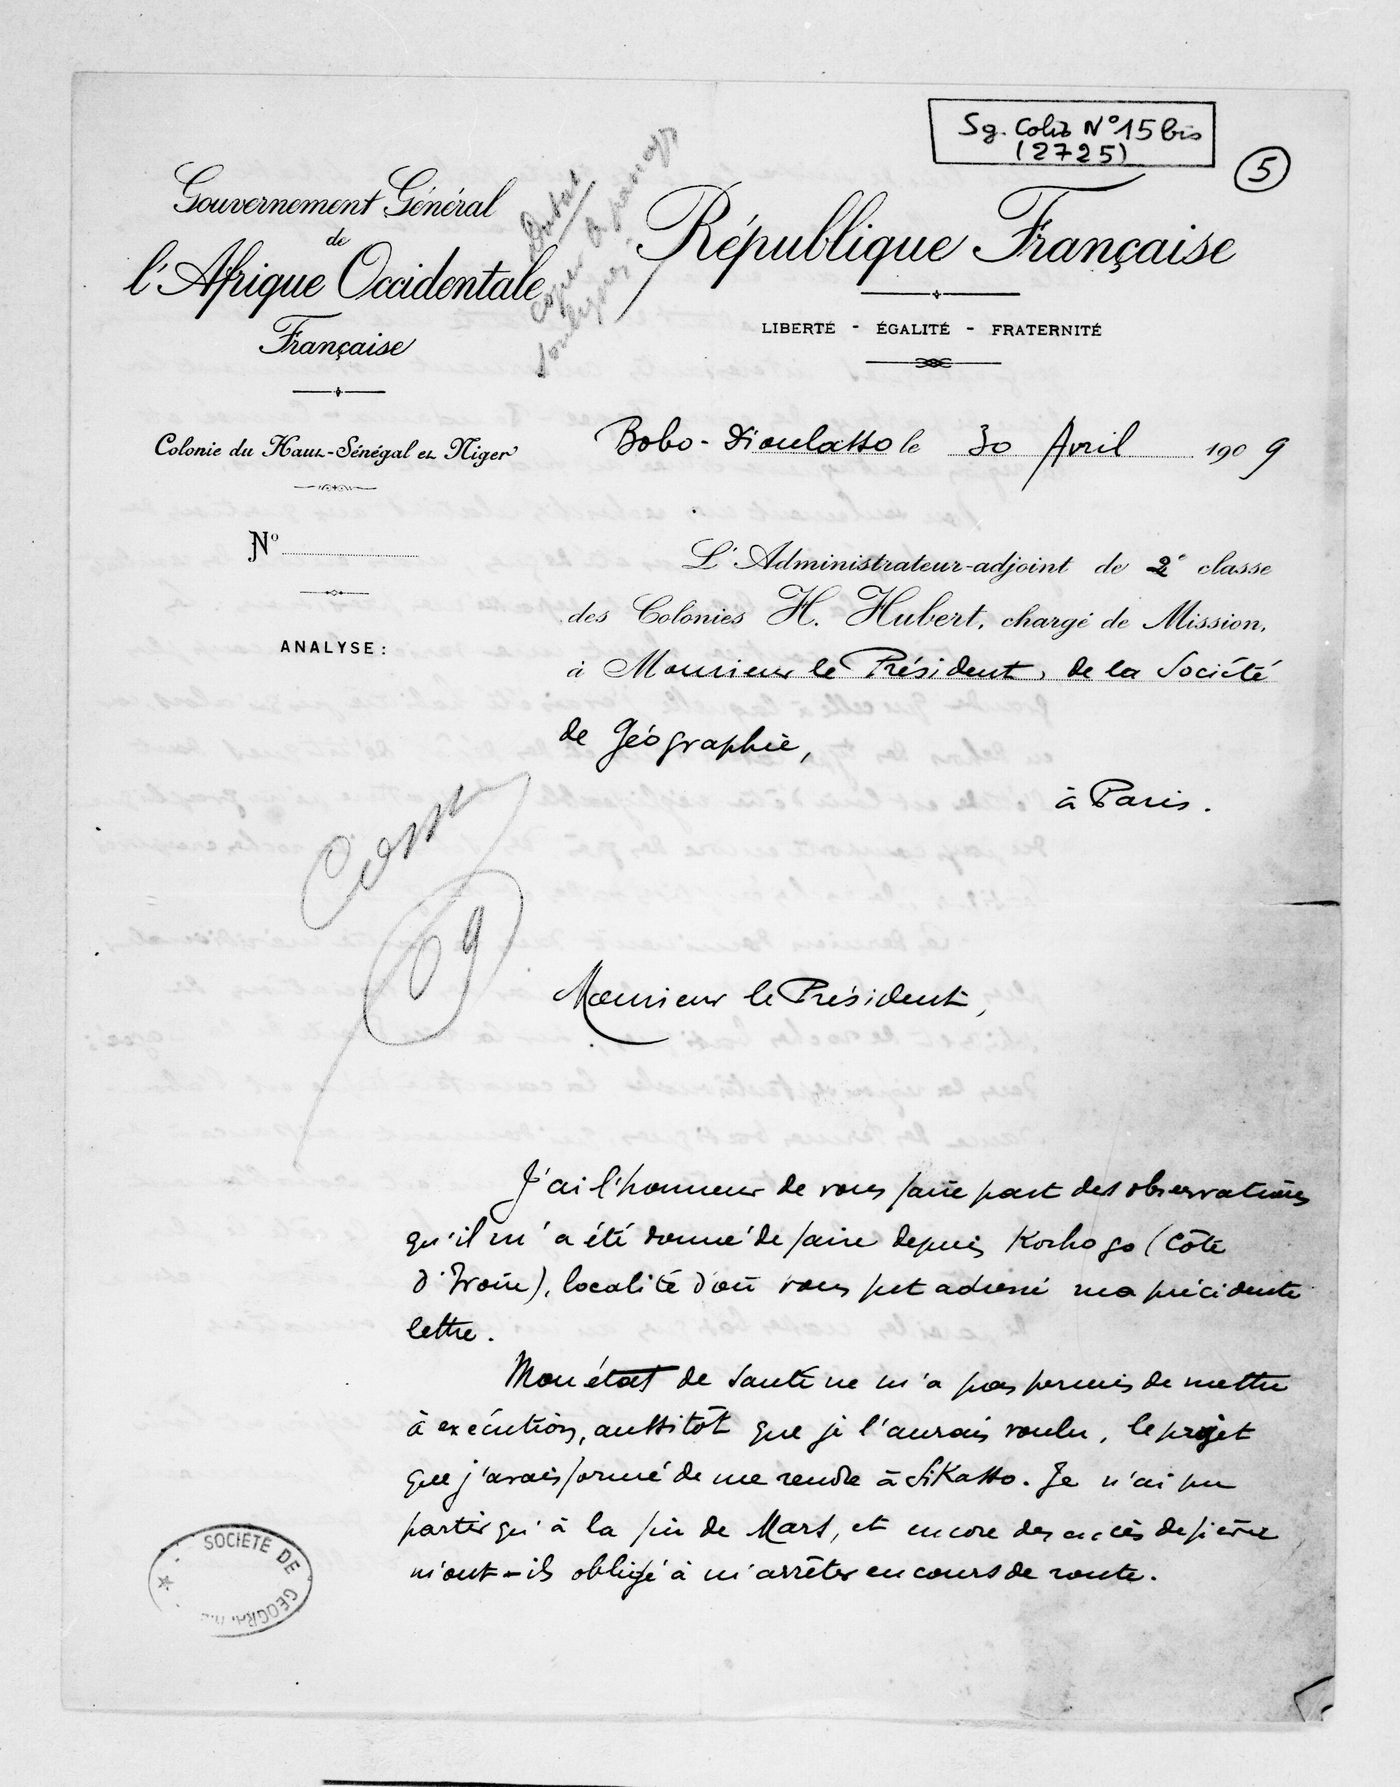 Sg. Colis N° 15 bis
(2725)
5
Gouvernement Général
de
l'Afrique Occidentale
Française
Colonie du Haut-Sénégal et Niger
N°
ANALYSE :
République Française
LIBERTÉ - ÉGALITÉ - FRATERNITÉ
Bobo-Dioulasso le 30 Avril 1909
L'Administrateur-adjoint de 2e classe
des Colonies H. Hubert, chargé de Mission,
à Monsieur le Président, de la Société
de Géographie,
à Paris.
69
Monsieur le Président,
J'ai l'honneur de vous faire part des observations
qu'il m'a été donné de faire depuis Korhogo (Côte
d'Ivoire), localité d'où vous fut adressé ma précédente
lettre.
Mon état de santé ne m'a pas permis de mettre
à exécution, aussitôt que je l'aurais voulu, le projet
que j'avais formé de me rendre à Sikasso. Je n'ai pu
partir qu'à la fin de Mars, et encore des accès de fièvre
m'ont-ils obligé à m'arrêter en cours de route.
SOCIÉTÉ DE GEOGRA